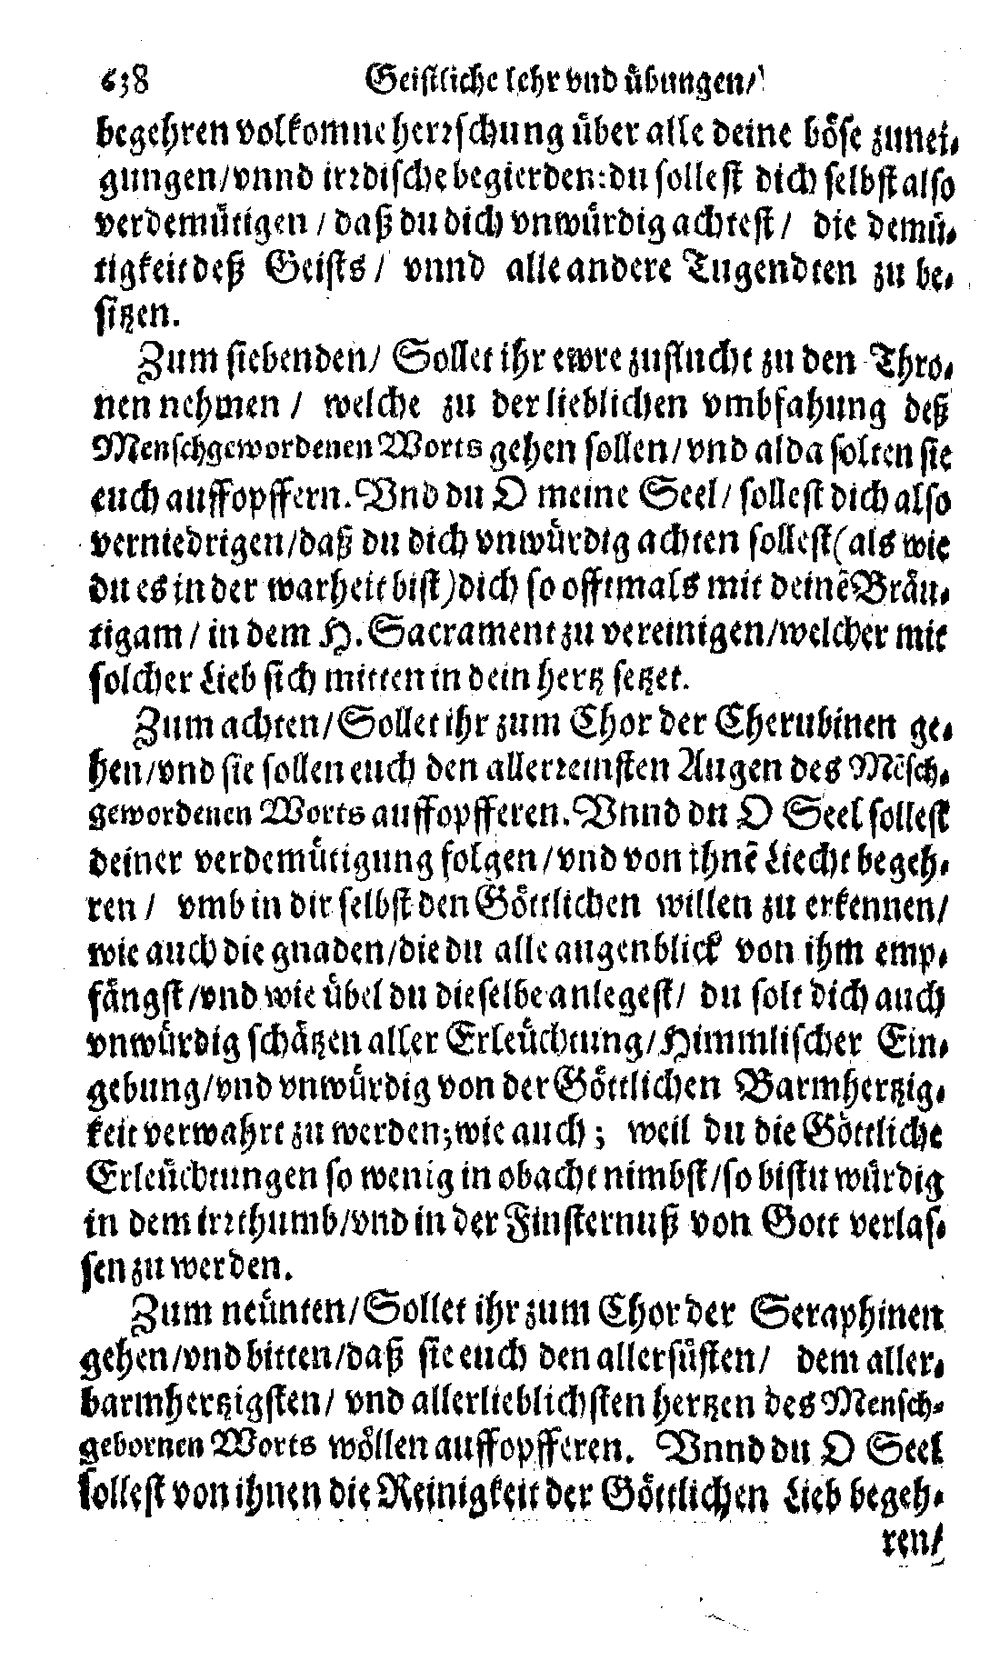 638 Geistliche lehr vnd übungen/
begehren volkomne herrschung über alle deine böse zunei-
gungen/vnnd irrdische begierden: du sollest dich selbst also
verdemütigen / daß du dich vnwürdig achtest / die demü-
tigkeit deß Geists / vnnd alle andere Tugendten zu be-
sitzen.
Zum siebenden/ Sollet ihr ewre zuflucht zu den Thro-
nen nehmen / welche zu der lieblichen vmbfahung deß
Menschgewordenen Worts gehen sollen/vnd alda solten sie
euch auffopffern. Vnd du O meine Seel/ sollest dich also
verniedrigen/daß du dich vnwürdig achten sollest (als wie
du es in der warheit bist) dich so offtmals mit deinē Bräu-
tigam / in dem H. Sacrament zu vereinigen/welcher mit
solcher Lieb sich mitten in dein hertz setzet.
Zum achten/Sollet ihr zum Chor der Cherubinen ge-
hen/vnd sie sollen euch den allerreinsten Augen des Mēsch-
gewordenen Worts auffopfferen. Vnnd du O Seel sollest
deiner verdemütigung folgen/vnd von ihnē Liecht begeh-
ren / vmb in dir selbst den Göttlichen willen zu erkennen/
wie auch die gnaden/die du alle augenblick von ihm emp-
fängst/vnd wie übel du dieselbe anlegest/ du solt dich auch
vnwürdig schätzen aller Erleüchtung/Himmlischer Ein-
gebung/vnd vnwürdig von der Göttlichen Barmhertzig-
keit verwahrt zu werden; wie auch; weil du die Göttliche
Erleüchtungen so wenig in obacht nimbst/so bistu würdig
in dem irrthumb/vnd in der Finsternuß von Gott verlas-
sen zu werden.
Zum neünten/Sollet ihr zum Chor der Seraphinen
gehen/vnd bitten/daß sie euch den allersüsten/ dem aller-
barmhertzigsten/ vnd allerlieblichsten hertzen des Mensch-
gebornen Worts wöllen auffopfferen. Vnnd du O Seel
sollest von ihnen die Reinigkeit der Göttlichen Lieb begeh-
ren/